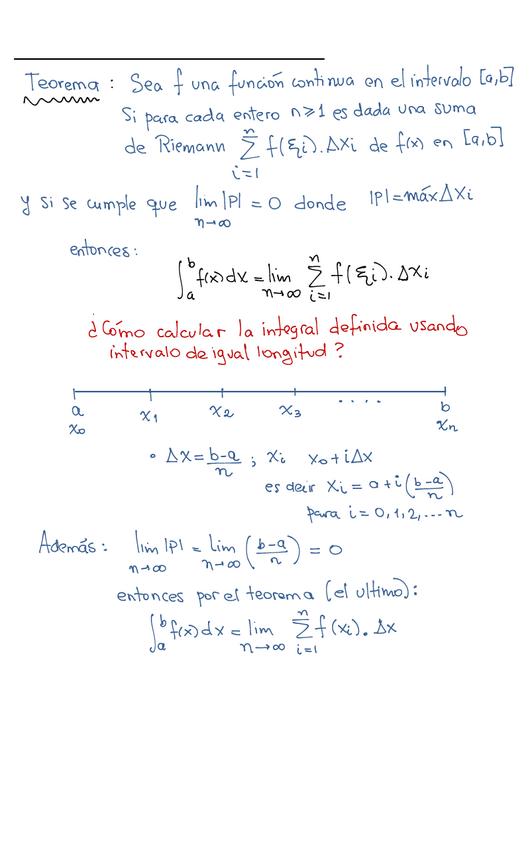 Teorema : Sea f una función continua en el intervalo [a,b]
Si para cada entero n≥1 es dada una suma
de Riemann ∑_{i=1}^{n} f(ξi).ΔXi de f(x) en [a,b]
y si se cumple que lim_{n→∞} |P| = 0 donde |P|=máxΔXi
entonces:
∫_a^b f(x)dx = lim_{n→∞} ∑_{i=1}^{n} f(ξi).ΔXi
¿Cómo calcular la integral definida usando
intervalo de igual longitud?
a x1 x2 x3 .... b
x0 xn
• ΔX = (b-a)/n ; Xi x0+iΔX
es decir Xi = a+i((b-a)/n)
para i = 0,1,2,...n
Además: lim_{n→∞} |P| = Lim_{n→∞} ((b-a)/n) = 0
entonces por el teorema (el ultimo):
∫_a^b f(x)dx = lim_{n→∞} ∑_{i=1}^{n} f(xi). Δx